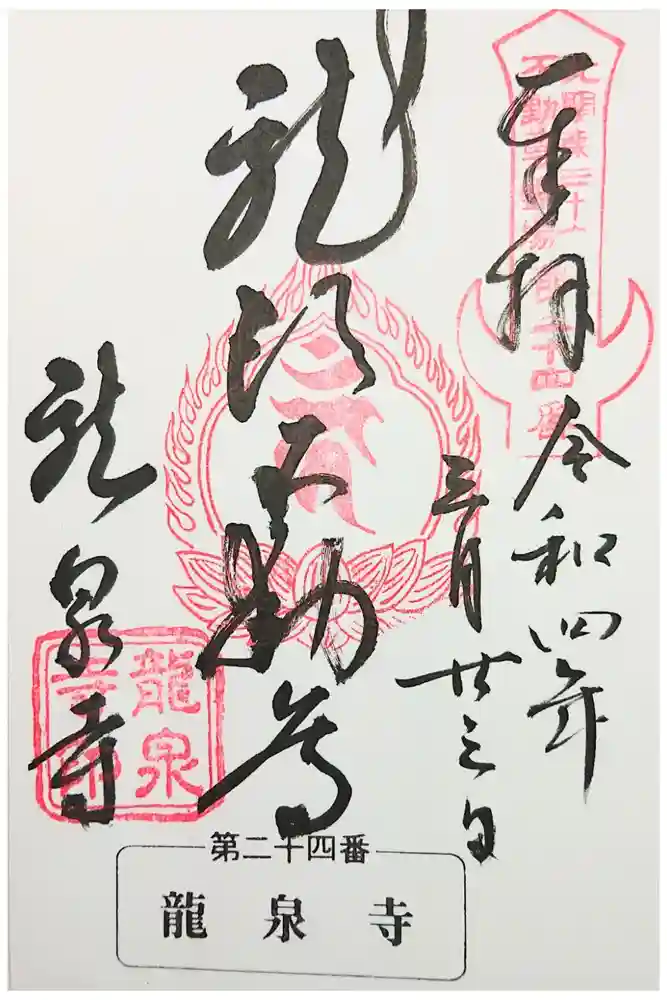 奉拝
令和四年
三月廿三日
第二十四番
龍 不動尊
龍泉寺
龍泉寺印
第二十四番
龍泉寺